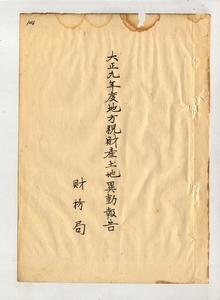 大正九年度地方税財産土地異動報告
財務局